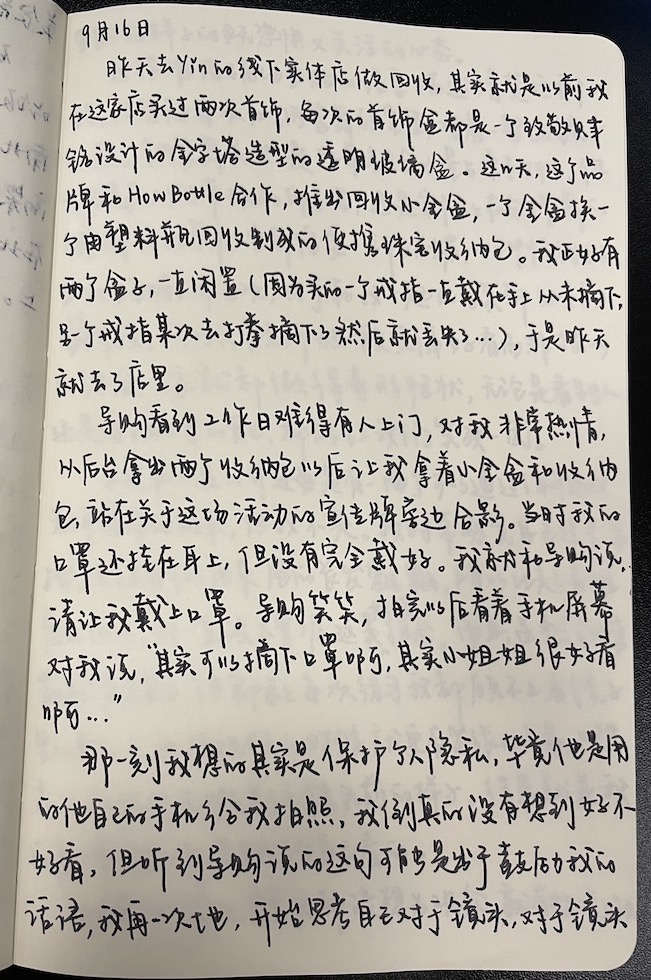 9月16日
昨天去Yin的线下实体店做回收，其实就是以前我
在这家店买过两次首饰，每次的首饰盒都是一个致敬贝聿
铭设计的金字塔造型的透明玻璃盒。这几天，这个品
牌和HowBottle合作，推出回收小金盒，一个金盒换一
个由塑料瓶回收制成的便携珠宝收纳包。我正好有
两个盒子，一直闲置（因为买的一个戒指一直戴在手上从未摘下，
另一个戒指某次去打拳摘下了然后就丢失了…），于是昨天
就去了店里。
导购看到工作日难得有人上门，对我非常热情，
从后台拿出两个收纳包以后让我拿着小金盒和收纳
包，站在关于这场活动的宣传牌旁边合影。当时我的
口罩还挂在耳上，但没有完全戴好。我就和导购说，
请让我戴上口罩。导购笑笑，拍完以后看着手机屏幕
对我说，“其实可以摘下口罩啊，其实小姐姐很好看
啊…”
那一刻我想的其实是保护个人隐私，毕竟他是用
的他自己的手机给我拍照，我倒真的没有想到好不
好看，但听到导购说的这句可能是出于鼓励我的
话语，我再一次地，开始思考自己对于镜头，对于镜头